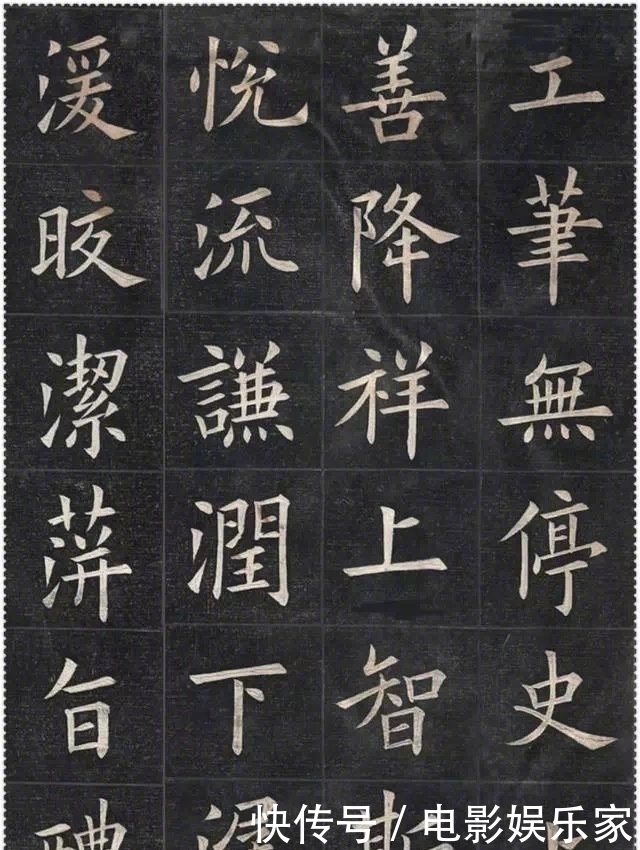 工筆無停史
善降祥上智
悅流謙潤下
湲晈潔蓱旨醴
快传号 / 电影娱乐家